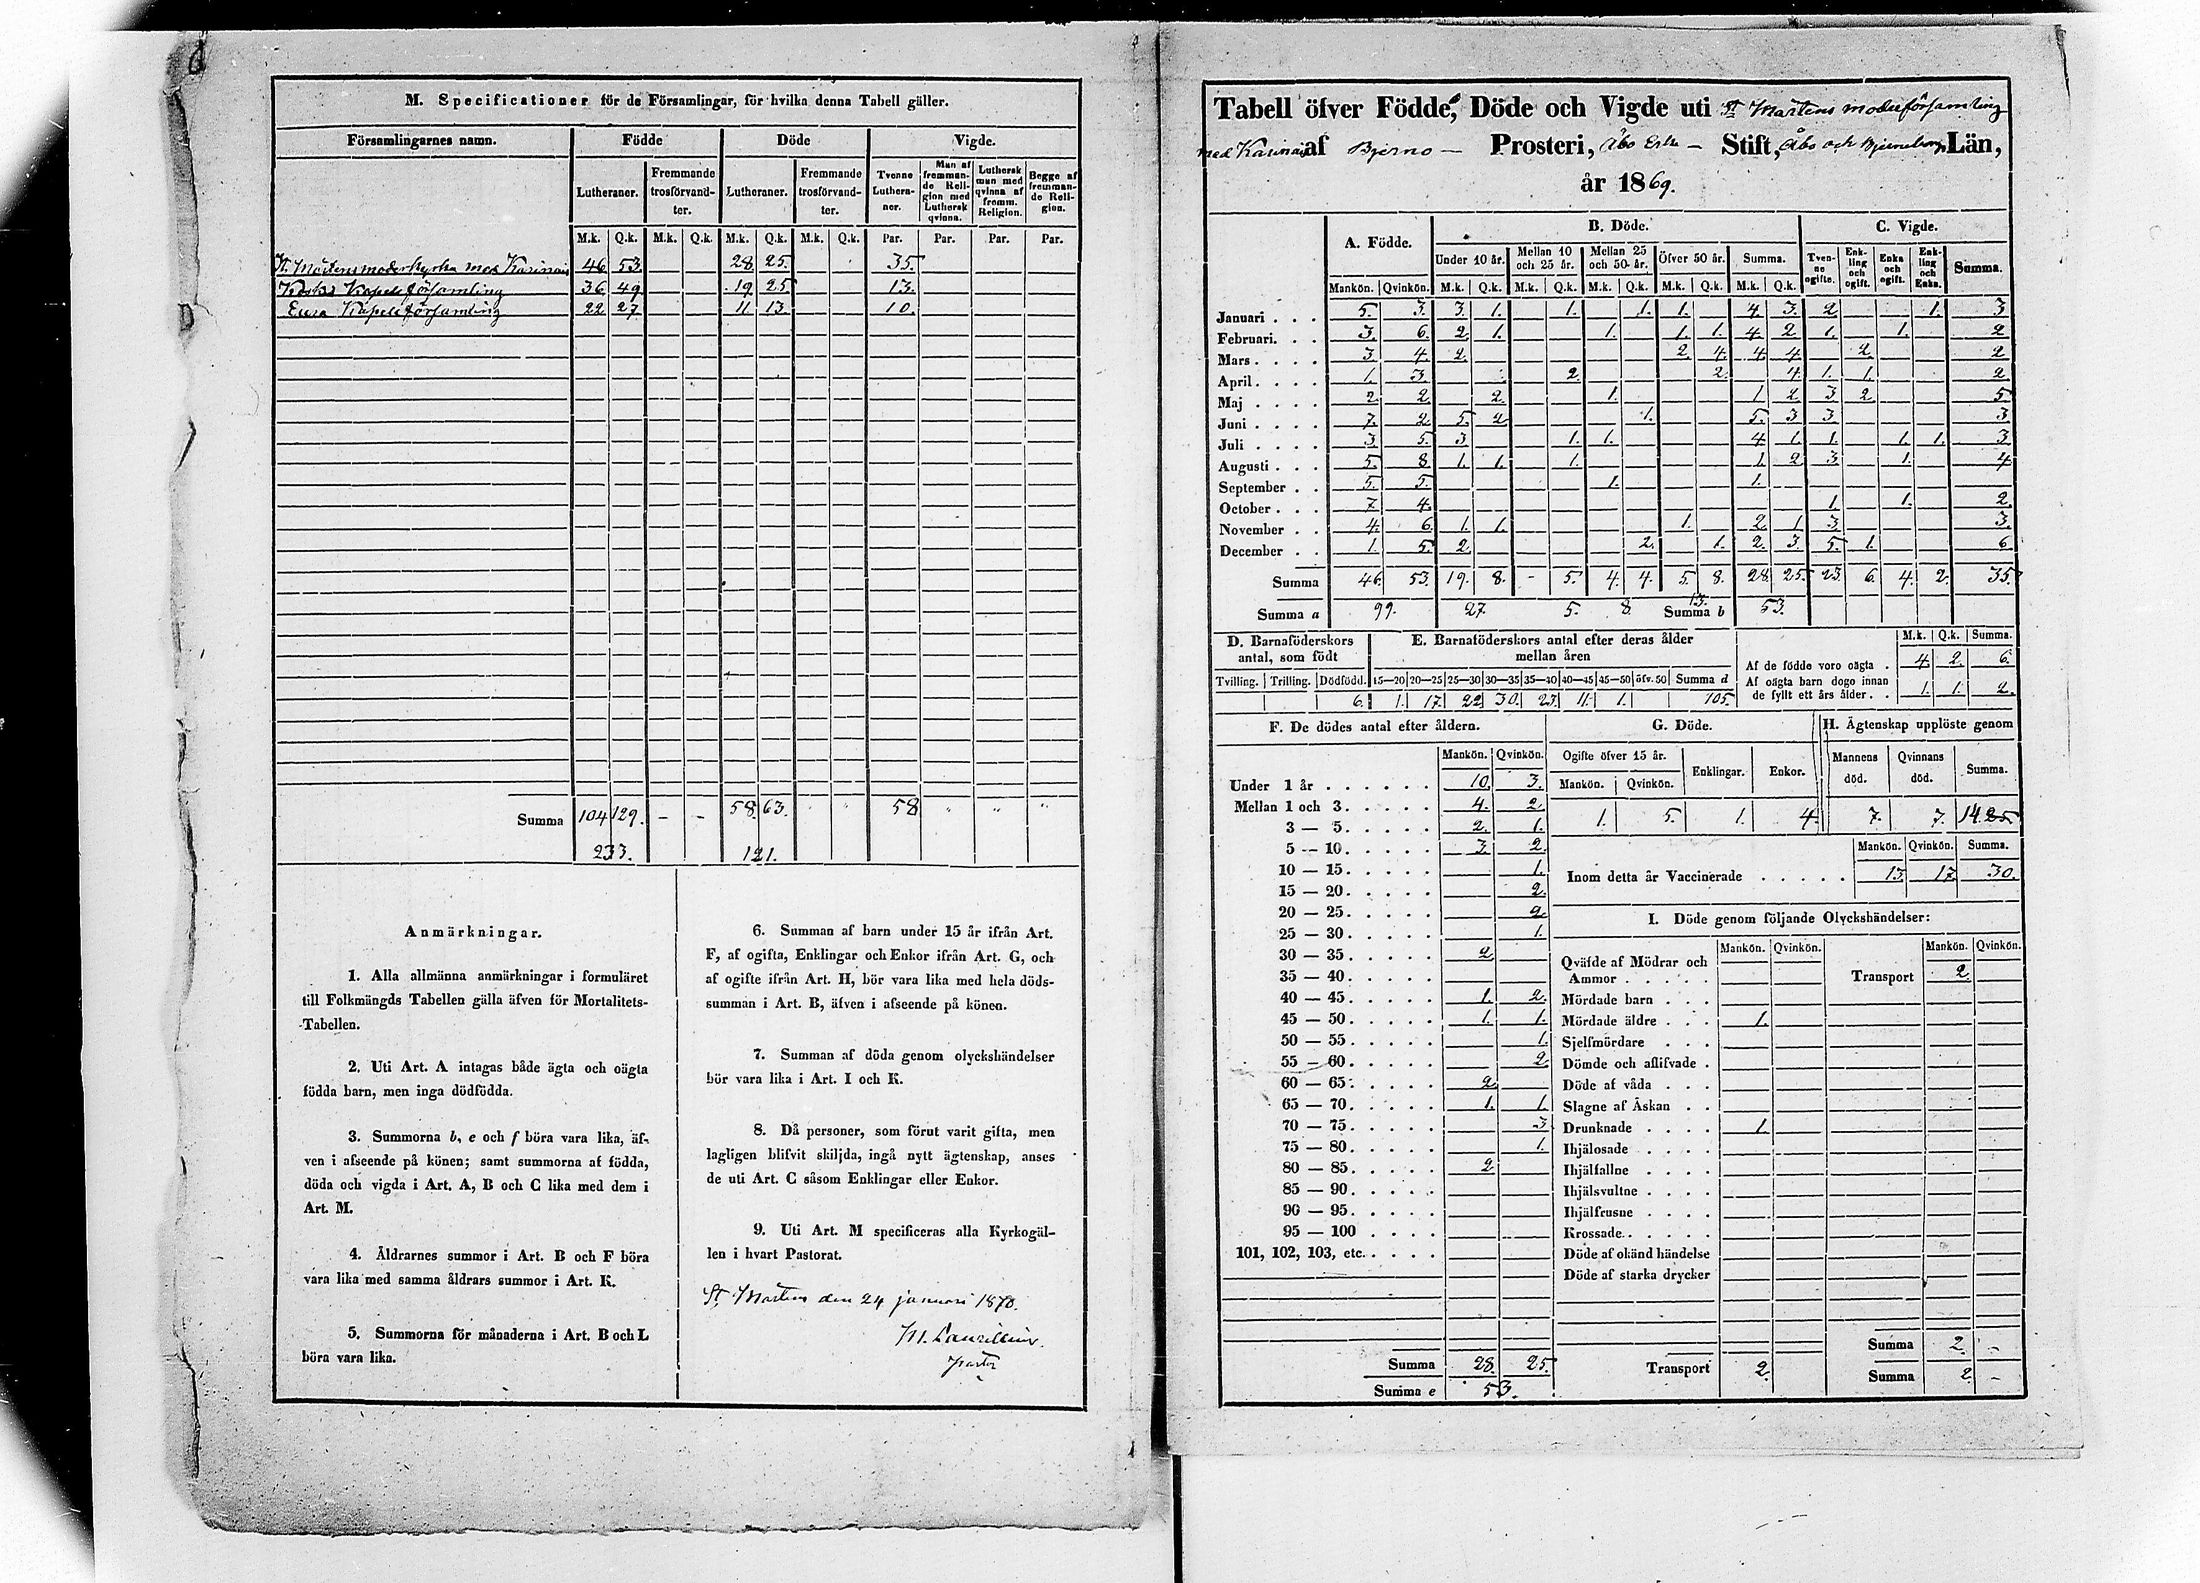 M. Specificationer för de Församlingar, för hvilka denna Tabell gäller.
Församlingarnes namn. Födde Döde Vigde.
Lutheraner. Fremmande trosförvand-ter. Lutheraner. Fremmande trosförvand-ter. Tvenne Luthera-ner. Man af fremman-de Reli-gion med Luthersk qvinna. Luthersk man med qvinna af fremm. Religion. Begge af fremman-de Reli-gion.
M.k. Q.k. M.k. Q.k. M.k. Q.k. M.k. Q.k. Par. Par. Par. Par.
St. Mårtens moderkyrka med Karinais 46 53. 28. 25. 35.
Koskis Kapellförsamling 36 49. 19 25 13.
Eura Kapellförsamling 22 27 11 13. 10.
Summa 104 129. - - 58. 63. " " 58 " " "
233. 121.
Anmärkningar.
1. Alla allmänna anmärkningar i formuläret
till Folkmängds Tabellen gälla äfven för Mortalitets-
-Tabellen.
2. Uti Art. A intagas både ägta och oägta
födda barn, men inga dödfödda.
3. Summorna b, e och f böra vara lika, äf-
ven i afseende på könen; samt summorna af födda,
döda och vigda i Art. A, B och C lika med dem i
Art. M.
4. Åldrarnes summor i Art. B och F böra
vara lika med samma åldrars summor i Art. K.
5. Summorna för månaderna i Art. B och L
böra vara lika.
6. Summan af barn under 15 år ifrån Art.
F, af ogifta, Enklingar och Enkor ifrån Art. G, och
af ogifte ifrån Art. H, bör vara lika med hela döds-
summan i Art. B, äfven i afseende på könen.
7. Summan af döda genom olyckshändelser
bör vara lika i Art. I och K.
8. Då personer, som förut varit gifta, men
lagligen blifvit skiljda, ingå nytt ägtenskap, anses
de uti Art. C såsom Enklingar eller Enkor.
9. Uti Art. M specificeras alla Kyrkogäl-
len i hvart Pastorat.
St. Mårtens den 24 januari 1870.
M. Laurellius.
pastor
Tabell öfver Födde, Döde och Vigde uti St Mårtens moderförsamling
med Karinais af Bjerno — Prosteri, Åbo Erke — Stift, Åbo och Bjerneborgs Län,
år 1869.
A. Födde. B. Döde. C. Vigde.
Under 10 år. Mellan 10 och 25 år. Mellan 25 och 50 år. Öfver 50 år. Summa. Tven-ne ogifte. Enk-ling och ogift. Enka och ogift. Enk-ling och Enka. Summa.
Mankön. Qvinkön. M.k. Q.k. M.k. Q.k. M.k. Q.k. M.k. Q.k. M.k. Q.k.
Januari . . . 5. 3. 3. 1. 1. 1. 1. 4. 3. 2 1. 3
Februari. . . 3. 6. 2. 1. 1. 1. 1. 4 2 1. 1. 2
Mars . . . . 3 4. 2. 2. 4. 4 4. 2. 2
April . . . . 1. 3. 2. 2. 4. 1. 1. 2
Maj . . . . 2. 2. 2. 1. 1 2 3 2. 5
Juni . . . . 7. 2. 5. 2. 1. 5. 3 3. 3.
Juli . . . . 3 5. 3. 1. 1. 4 1. 1. 1. 1. 3
Augusti . . . 5. 8. 1. 1. 1. 1. 2 3 1. 4
September . . 5. 5. 1. 1.
October . . . 7 4. 1. 1. 2.
November . . 4. 6. 1. 1. 1. 2. 1 3 3.
December . . 1. 5. 2. 2. 1. 2. 3. 5. 1. 6.
Summa 46. 53. 19. 8. - 5. 4. 4. 5. 8. 28. 25. 23. 6. 4. 2. 35.
Summa a 99. 27. 5. 8. 13. Summa b 53.
D. Barnaföderskors antal, som födt
E. Barnaföderskors antal efter deras ålder mellan åren
Tvilling. Trilling. Dödfödd. 15—20 20—25 25—30 30—35 35—40 40—45 45—50 öfv. 50 Summa d
6. 1. 17. 22. 30. 23. 11. 1. 105.
M.k. Q.k. Summa.
Af de födde voro oägta . 4. 2. 6.
Af oägta barn dogo innan
de fyllt ett års ålder. . 1. 1. 2.
F. De dödes antal efter åldern.
Mankön. Qvinkön.
Under 1 år . . . . . . 10. 3.
Mellan 1 och 3. . . . . 4. 2.
3 — 5. . . . . 2. 1.
5 — 10. . . . . 3. 2.
10 — 15. . . . . 1.
15 — 20. . . . . 2.
20 — 25. . . . . 2.
25 — 30. . . . . 1.
30 — 35. . . . . 2
35 — 40. . . . .
40 — 45. . . . . 1. 2.
45 — 50. . . . . 1. 1.
50 — 55. . . . . 1.
55 — 60. . . . . 2.
60 — 65. . . . . 2.
65 — 70. . . . . 1. 1.
70 — 75. . . . . 3.
75 — 80. . . . . 1.
80 — 85. . . . . 2
85 — 90. . . . .
90 — 95. . . . .
95 — 100 . . . .
101, 102, 103, etc. . . . .
Summa 28. 25.
Summa e 53.
G. Döde.
Ogifte öfver 15 år. Enklingar. Enkor.
Mankön. Qvinkön.
1. 5. 1. 4.
H. Ägtenskap upplöste genom
Mannens död. Qvinnans död. Summa.
7. 7. 14. 25.
Mankön. Qvinkön. Summa.
Inom detta år Vaccinerade . . . . . 13. 17. 30.
I. Döde genom följande Olyckshändelser:
Mankön. Qvinkön. Mankön. Qvinkön.
Qväfde af Mödrar och
Ammor . . . . . Transport 2.
Mördade barn . . .
Mördade äldre . . . 1.
Sjelfmördare . . .
Dömde och aflifvade .
Döde af våda . . .
Slagne af Åskan . .
Drunknade . . . . 1.
Ihjälosade . . . .
Ihjälfallne . . . .
Ihjälsvultne . . . .
Ihjälfrusne . . . .
Krossade. . . . .
Döde af okänd händelse
Döde af starka drycker
Summa 2. -
Transport 2. Summa 2. -